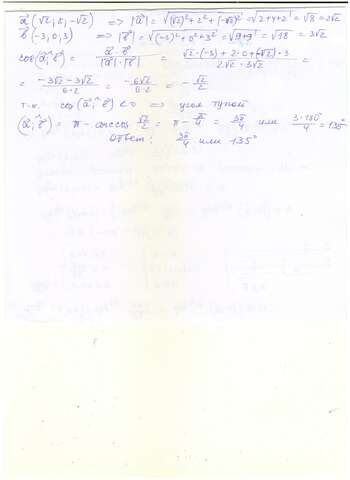 a⃗ (√2; 2; -√2) => |a⃗| = √((√2)² + 2² + (-√2)²) = √(2+4+2) = √8 = 2√2
b⃗ (-3; 0; 3) => |b⃗| = √((-3)² + 0² + 3²) = √(9+9) = √18 = 3√2
cos(a⃗;^b⃗) = (a⃗ · b⃗)/(|a⃗| · |b⃗|) = (√2·(-3) + 2·0 + (-√2)·3)/(2√2 · 3√2) =
= (-3√2 - 3√2)/(6·2) = -6√2/(6·2) = -√2/2
т.к. cos(a⃗;^b⃗) < 0 => угол тупой
(a⃗;^b⃗) = π - arccos √2/2 = π - π/4 = 3π/4 или 3·180°/4 = 135°
Ответ: 3π/4 или 135°